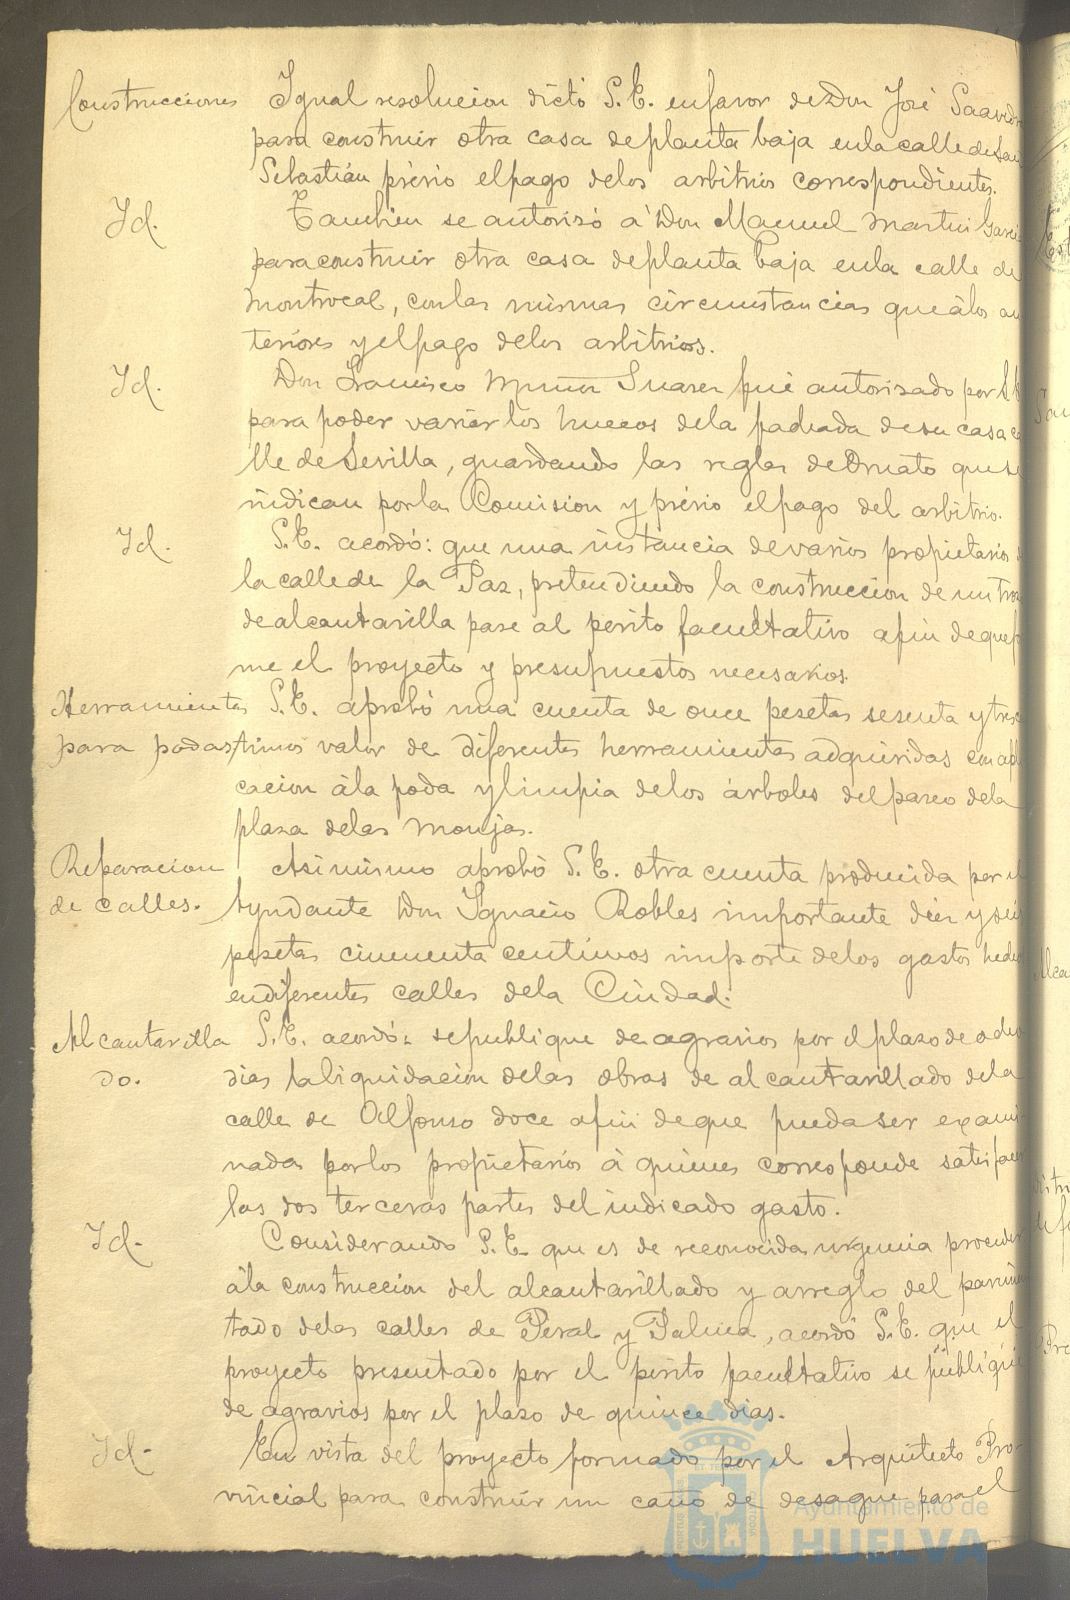 Construcciones Igual resolucion dictó S.E. en favor de Don José Saavedra
para construir otra casa de planta baja en la calle de San
Sebastián prévio el pago de los arbitrios correspondientes.
Id. Tambien se autorizó á Don Manuel Martin Garci
para construir otra casa de planta baja en la calle de
Montrocal, con las mismas circunstancias que á los an
teriores y el pago de los arbitrios.
Id. Don Francisco Muñoz Suarez fué autorizado por S.E.
para poder variar los huecos de la fachada de su casa ca
lle de Sevilla, guardando las reglas de Ornato que se
indican por la Comision y prévio el pago del arbitrio.
Id. S.E. acordó: que una instancia de varios propietarios de
la calle de la Paz, pretendiendo la construccion de un tro
de alcantarilla pase al perito facultativo a fin de que for
me el proyecto y presupuestos necesarios.
Herramientas S.E. aprobó una cuenta de once pesetas sesenta y tres
para podas timos valor de diferentes herramientas adquiridas con apli
cacion á la poda y limpia de los árboles del paseo de la
plaza de las Monjas.
Reparacion Asimismo aprobó S.E. otra cuenta producida por el
de calles. Ayudante Don Ignacio Robles importante diez y seis
pesetas cincuenta centimos importe de los gastos hechos
en diferentes calles de la Ciudad.
Alcantarilla S.E. acordó: se publique de agravios por el plazo de ocho
do. dias la liquidacion de las obras de alcantarillado de la
calle de Alfonso doce a fin de que pueda ser exami
nada por los propietarios á quienes corresponde satisfacer
las dos terceras partes del indicado gasto.
Id. Considerando S.E. que es de reconocida urgencia proceder
á la construccion del alcantarillado y arreglo del pavimen
tado de las calles de Peral y Palma, acordó S.E. que el
proyecto presentado por el perito facultativo se publique
de agravios por el plazo de quince dias.
Id. En vista del proyecto formado por el Arquitecto Pro
vincial para construir un caño de desague para el
Ayuntamiento de
HUELVA